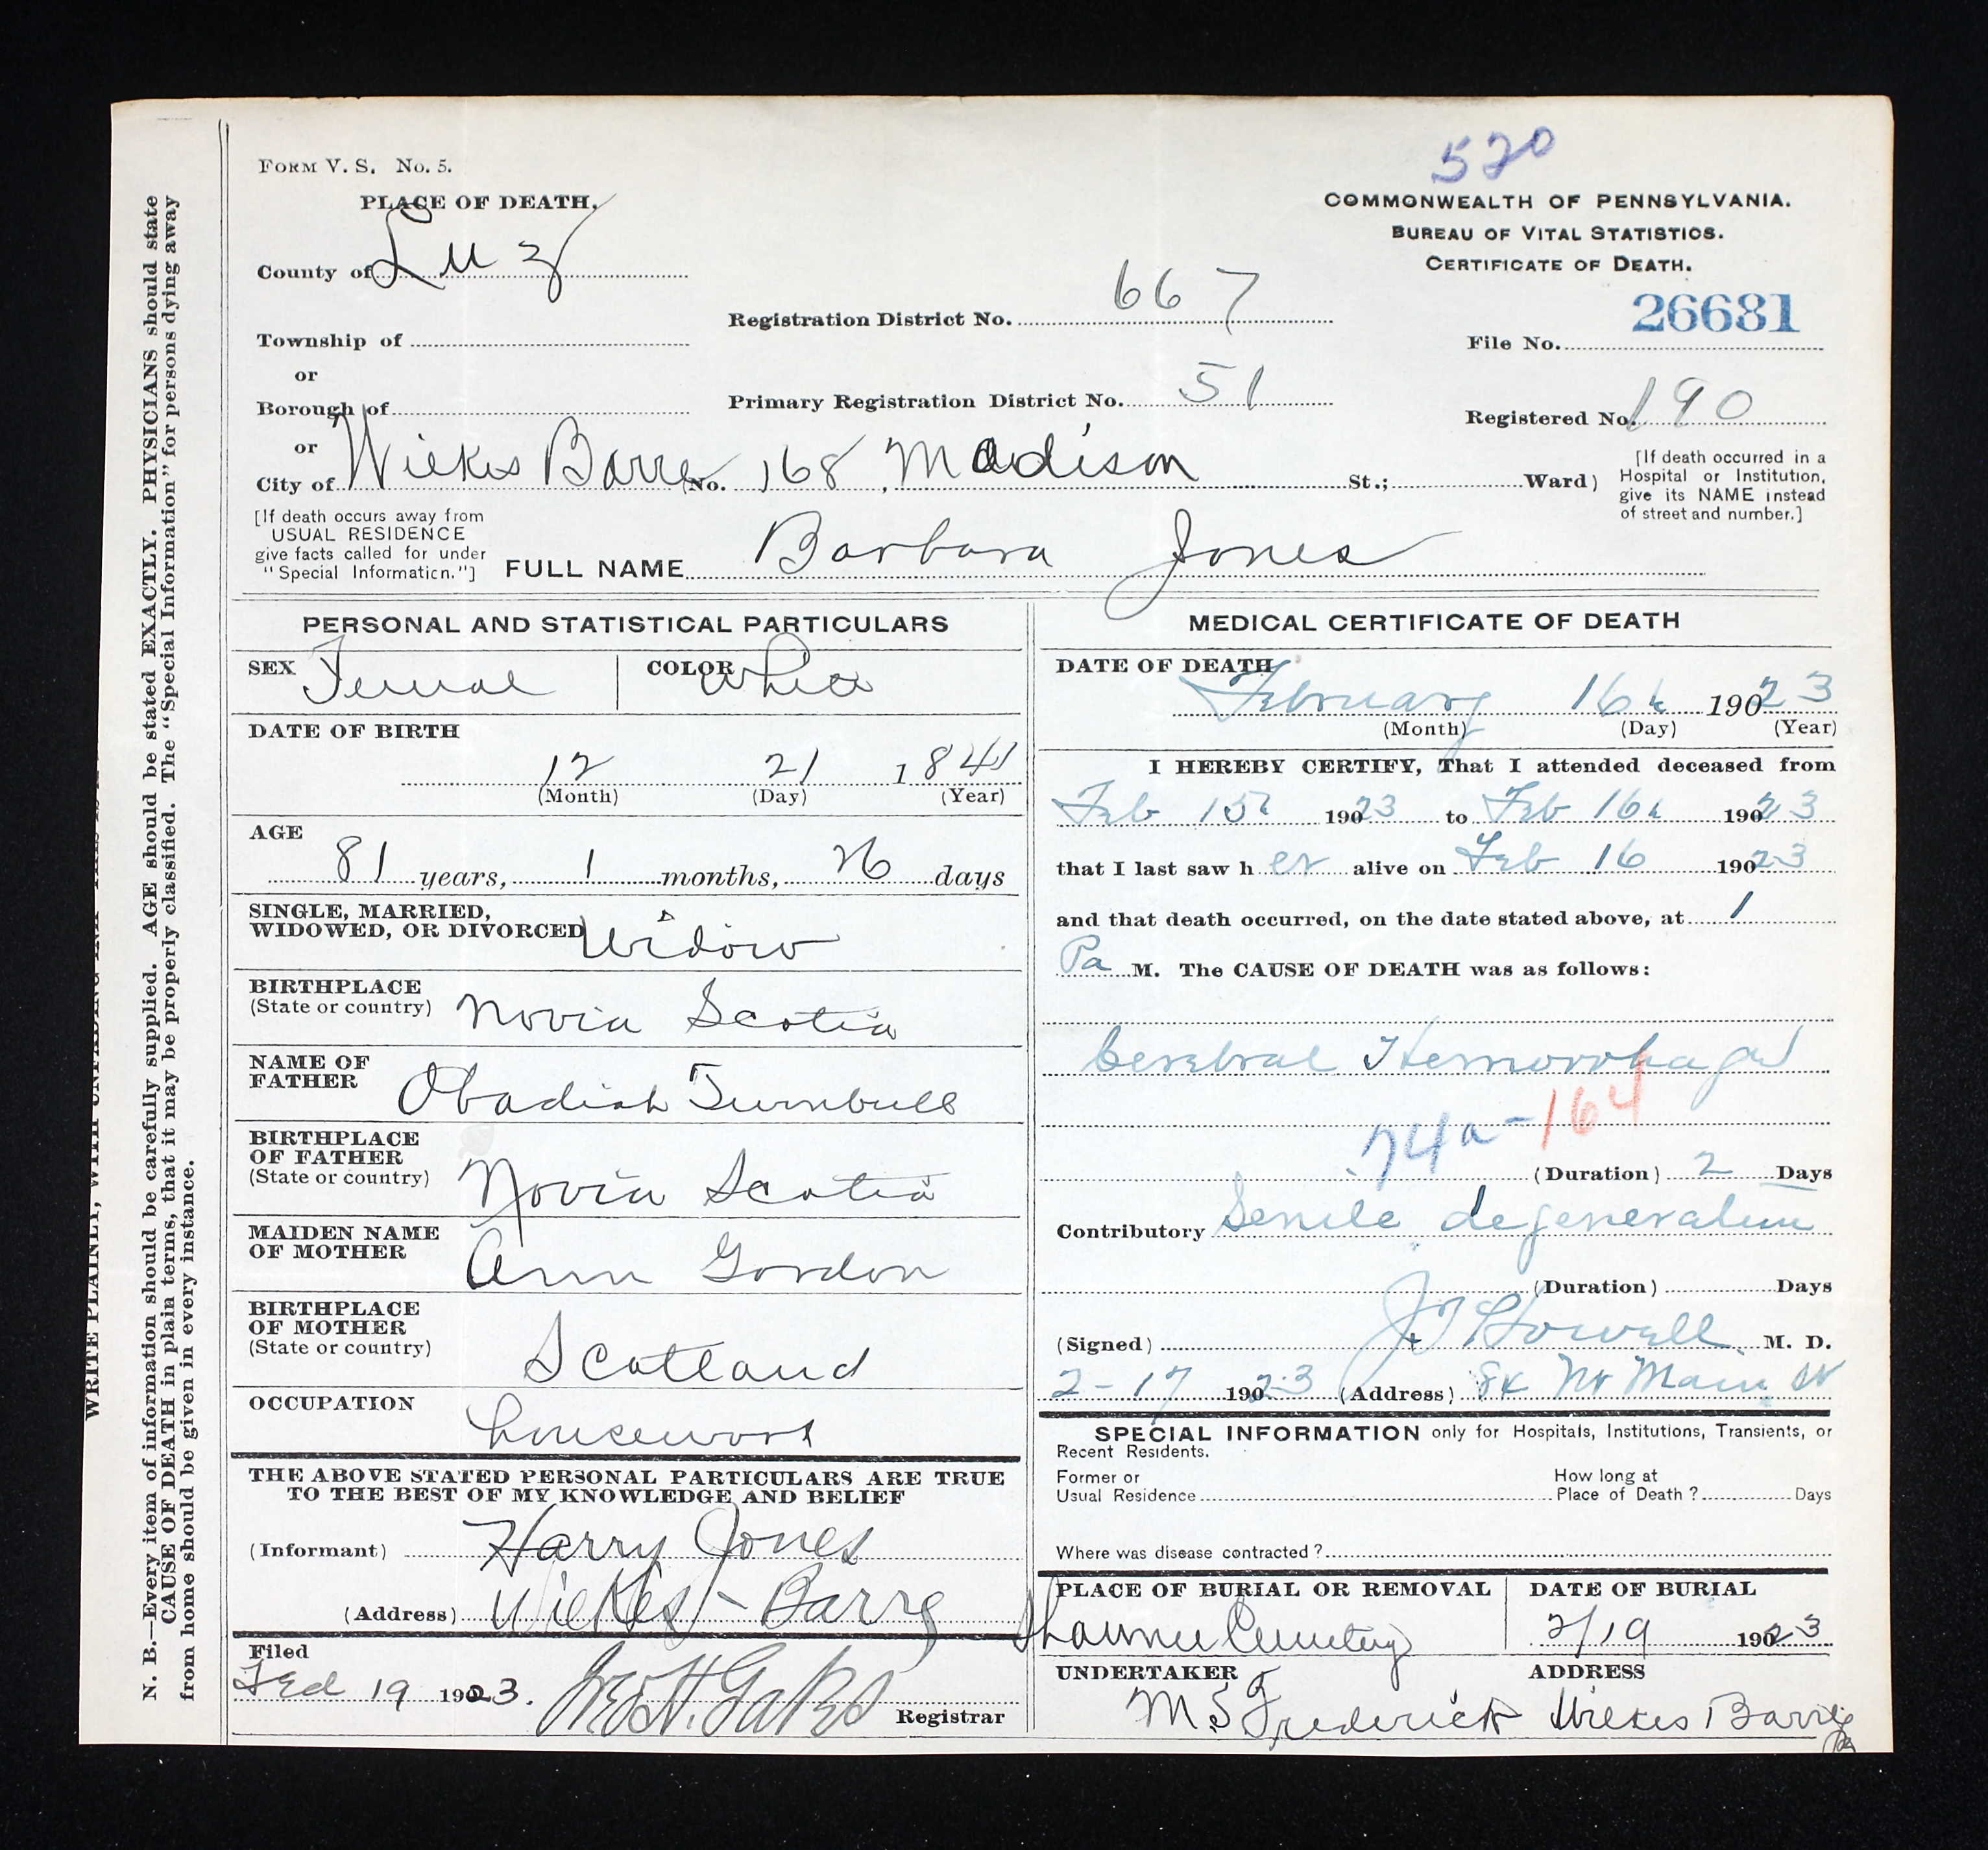 520
FORM V. S. No. 5.
PLACE OF DEATH.
COMMONWEALTH OF PENNSYLVANIA.
BUREAU OF VITAL STATISTICS.
CERTIFICATE OF DEATH.
County of Luz
Registration District No. 667
26681
File No.
Township of
or
Borough of
Primary Registration District No. 51
Registered No. 190
or
City of Wilkes Barre (No. 168, Madison St.; Ward)
[If death occurred in a
Hospital or Institution,
give its NAME instead
of street and number.]
[If death occurs away from
USUAL RESIDENCE
give facts called for under
"Special Information."]
FULL NAME Barbara Jones
PERSONAL AND STATISTICAL PARTICULARS
SEX Femal COLOR White
DATE OF BIRTH
12 21 1841
(Month) (Day) (Year)
AGE
81 years, 1 months, 26 days
SINGLE, MARRIED,
WIDOWED, OR DIVORCED Widow
BIRTHPLACE
(State or country) Novia Scotia
NAME OF
FATHER Obadiah Turnbull
BIRTHPLACE
OF FATHER
(State or country) Novia Scotia
MAIDEN NAME
OF MOTHER Ann Gordon
BIRTHPLACE
OF MOTHER
(State or country) Scotland
OCCUPATION
housework
THE ABOVE STATED PERSONAL PARTICULARS ARE TRUE
TO THE BEST OF MY KNOWLEDGE AND BELIEF
(Informant) Harry Jones
(Address) Wilkes-Barre
Filed
Feb 19 1923. Registrar
MEDICAL CERTIFICATE OF DEATH
DATE OF DEATH
February 16th 19023
(Month) (Day) (Year)
I HEREBY CERTIFY, That I attended deceased from
Feb 15th 19023 to Feb 16th 19023
that I last saw h er alive on Feb 16 19023
and that death occurred, on the date stated above, at 1
Pa M. The CAUSE OF DEATH was as follows:
Cerebral Hemorrhage
74a-164
(Duration) 2 Days
Contributory Senile degeneration
(Duration) Days
(Signed) J T Howell M. D.
2-17 19023 (Address) 84 No Main St
SPECIAL INFORMATION only for Hospitals, Institutions, Transients, or
Recent Residents.
Former or
Usual Residence
How long at
Place of Death? Days
Where was disease contracted?
PLACE OF BURIAL OR REMOVAL
Shawnee Cemetery
DATE OF BURIAL
2/19 1923
UNDERTAKER
M. S. Frederick
ADDRESS
Wilkes Barre
N. B.—Every item of information should be carefully supplied. AGE should be stated EXACTLY. PHYSICIANS should state
CAUSE OF DEATH in plain terms, that it may be properly classified. The "Special Information" for persons dying away
from home should be given in every instance.
WRITE PLAINLY, WITH UNFADING INK